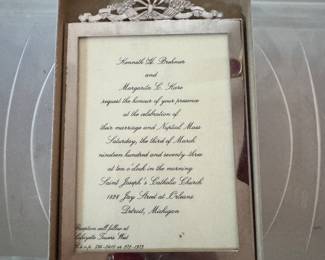 Kenneth W. Brehmer
and
Margarita C. Haro
request the honour of your presence
at the celebration of
their marriage and Nuptial Mass
Saturday, the third of March
nineteen hundred and seventy-three
at ten o'clock in the morning
Saint Joseph's Catholic Church
1828 Jay Street at Orleans
Detroit, Michigan
Reception will follow at
Lafayette Towers West